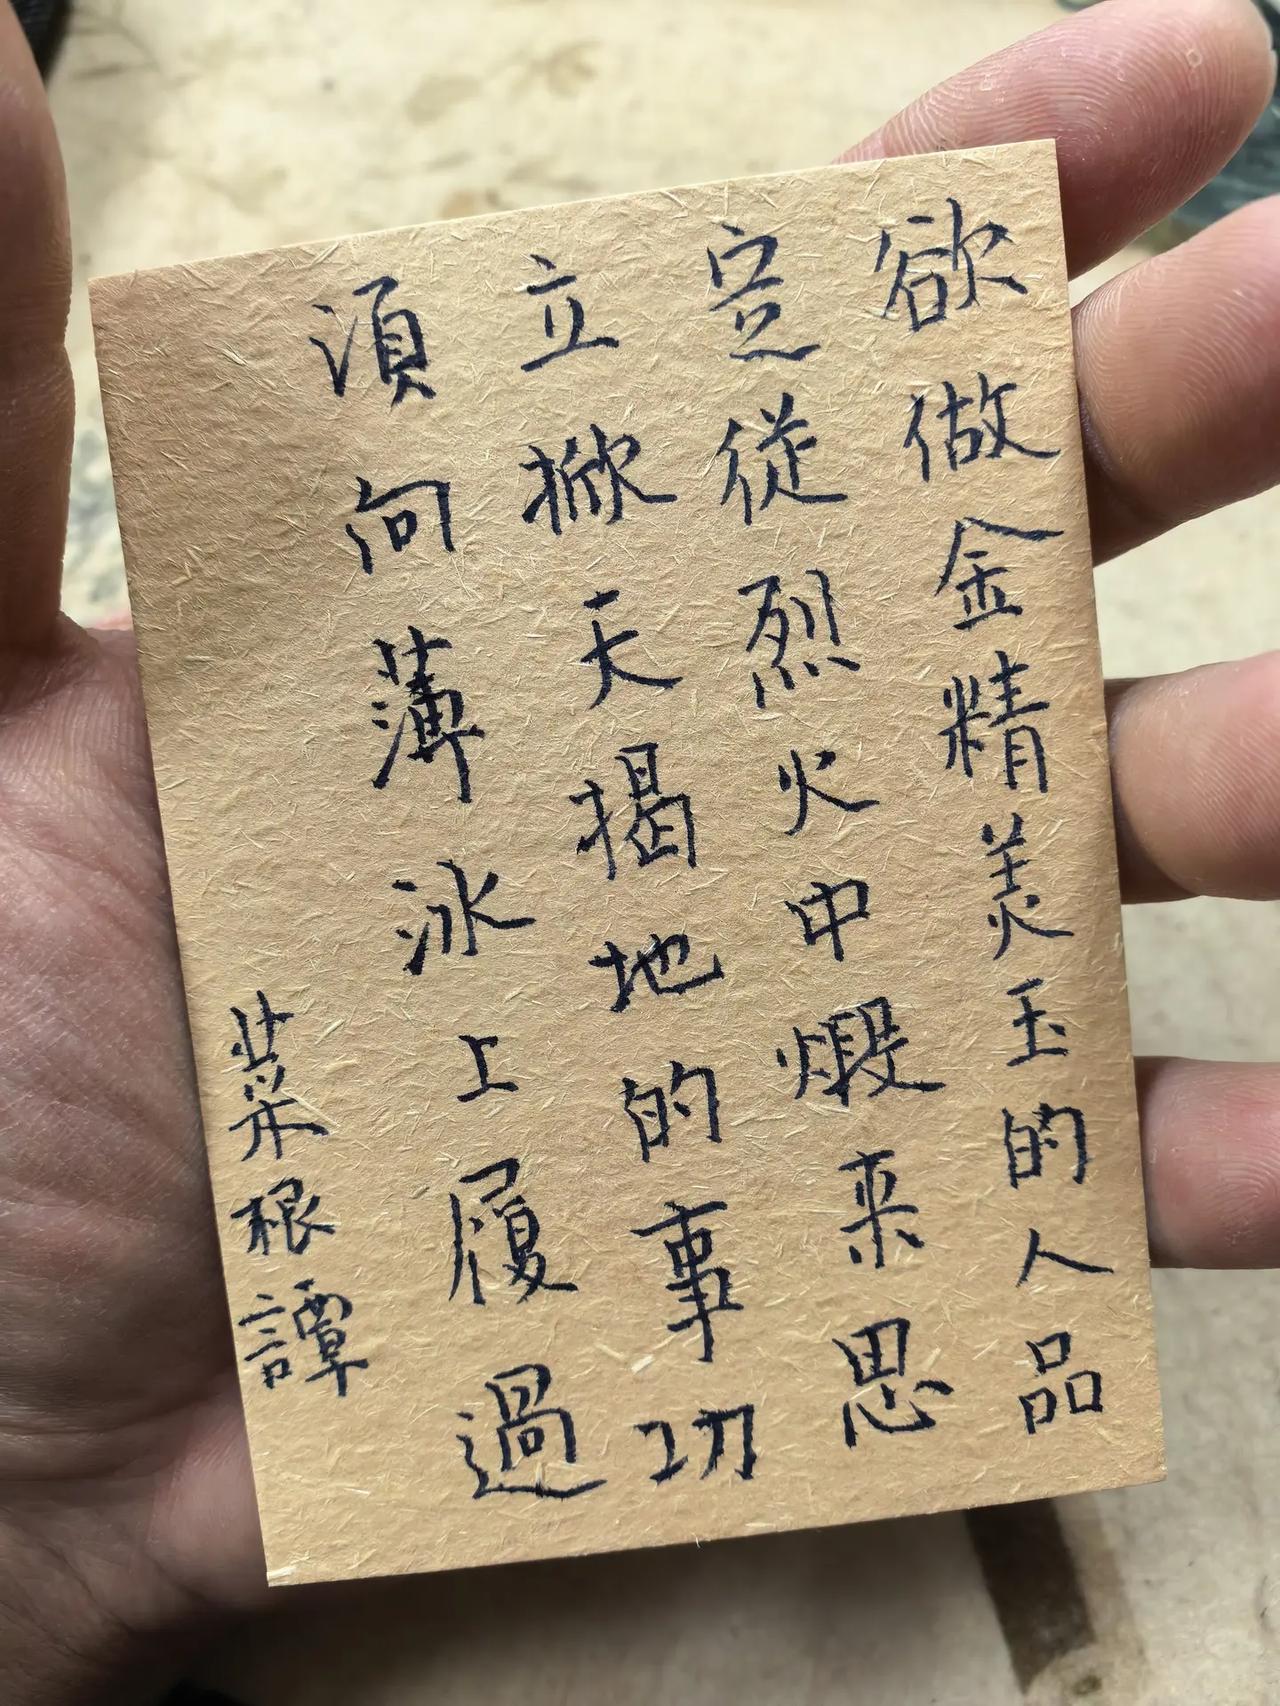 欲做金精美玉的人品
定從烈火中煅来思
立掀天揭地的事功
須向薄冰上履過
菜根譚